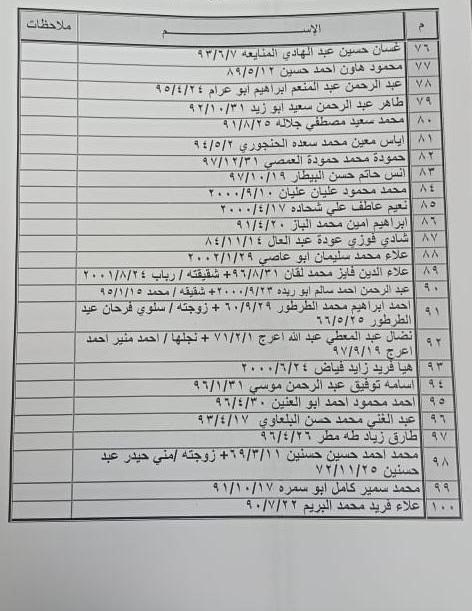 م الإســـــــم ملاحظات
٧٦ غسان حسين عبد الهادي المنايعه ٩٣/٦/٧
٧٧ محمود هاون احمد حسين ٨٩/٥/١٢
٧٨ عبد الرحمن عبد المنعم ابراهيم ابو عرام ٩٥/٤/٢٤
٧٩ طاهر عبد الرحمن سعيد ابو زيد ٩٢/١٠/٣١
٨٠ محمد سعيد مصطفي جلاله ٩١/٨/٢٥
٨١ اياس معين محمد سعده الحنجوري ٩٤/٥/٢
٨٢ حمودة محمد حمودة العمصي ٩٧/١٢/٣١
٨٣ انس حاتم حسن البيطار ٩٧/١٠/١٩
٨٤ محمد محمود عليان عليان ٢٠٠٠/٩/١٠
٨٥ نعيم عاطف علي شحاده ٢٠٠٠/٤/١٧
٨٦ ابراهيم امين محمد الباز ٩١/٤/٢٠
٨٧ شادي فوزي عودة عبد العال ٨٤/١١/١٤
٨٨ علاء محمد سليمان ابو عاصي ٢٠٠٢/١/٢٩
٨٩ علاء الدين فايز محمد لقان ٩٦/٨/٣١+ شقيقته / رباب ٢٠٠١/٨/٢٤
٩٠ عبد الرحمن احمد سالم ابو ريده ٢٠٠٠/٩/٢٣+ شقيقه / محمد ٩٥/١/١٥
٩١ احمد ابراهيم محمد الطرطور ٦٠/٩/٢٩ + زوجته / سلوي فرحان عيد
الطرطور ٦٦/٥/٢٥
٩٢ نضال عبد المعطي عبد الله اعرج ٧١/٢/١ + نجلها / احمد منير احمد
اعرج ٩٧/٩/١٩
٩٣ هيا فريد زايد فياض ٢٠٠٠/٦/٢٤
٩٤ اسامه توفيق عبد الرحمن موسي ٩٦/١/٣١
٩٥ احمد محمود احمد ابو العنين ٩٦/٤/٣٠
٩٦ عبد الغني محمد حسن البلعاوي ٩٣/٤/١٧
٩٧ طارق زياد طه مطر ٩٦/٤/٢٦
٩٨ محمد احمد حسين حسنين ٦٩/٣/١١+ زوجته /مني حيدر عبد
حسنين ٧٢/١١/٢٥
٩٩ محمد سمير كامل ابو سمره ٩١/١٠/١٧
١٠٠ علاء فريد محمد البريم ٩٠/٧/٢٢